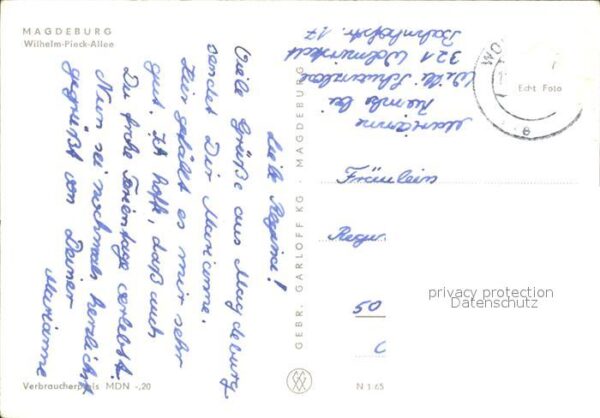 MAGDEBURG
Wilhelm-Pieck-Allee
Liebe Regina!
Viele Grüße aus Magdeburg
sendet Dir Marianne.
Hier gefällt es mir sehr
gut. Ich hoffe, daß auch
Du frohe Ferientage verlebst.
Nun sei nochmals herzlichst
gegrüßt von Deiner
Marianne
Verbraucherpreis MDN -,20
GEBR. GARLOFF KG · MAGDEBURG
Marianne
bei
Willi
321 Wolmirstedt
Bahnhofstr. 17
WO
Echt Foto
Fräulein
Regin
50
privacy protection
Datenschutz
N 1/65